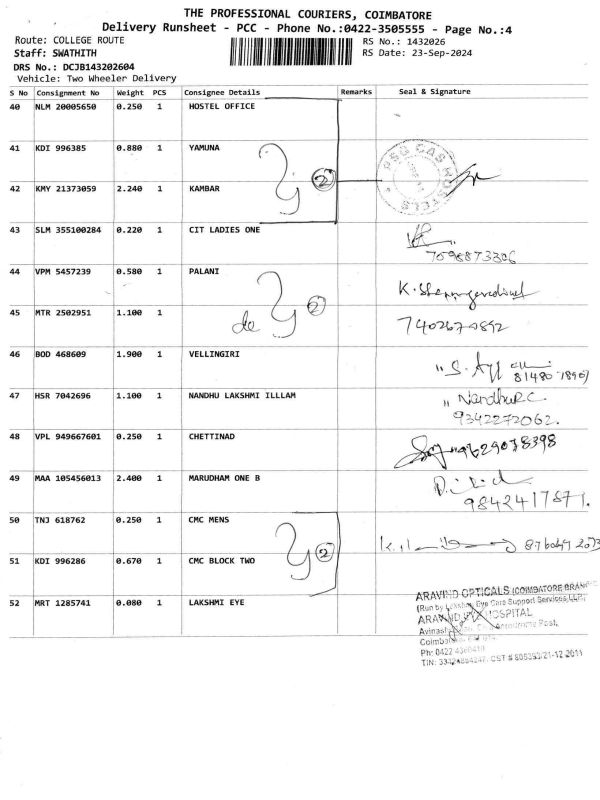 THE PROFESSIONAL COURIERS, COIMBATORE
Delivery Runsheet - PCC - Phone No.:0422-3505555 - Page No.:4
Route: COLLEGE ROUTE
RS No.: 1432026
Staff: SWATHITH
RS Date: 23-Sep-2024
DRS No.: DCJB143202604
Vehicle: Two Wheeler Delivery
S No Consignment No Weight PCS Consignee Details Remarks Seal & Signature
40 NLM 20005650 0.250 1 HOSTEL OFFICE
41 KDI 996385 0.880 1 YAMUNA
PSG CAS HOSTELS
42 KMY 21373059 2.240 1 KAMBAR
2
43 SLM 355100284 0.220 1 CIT LADIES ONE
7598873306
44 VPM 5457239 0.580 1 PALANI
45 MTR 2502951 1.100 1
2
7402670892
46 BOD 468609 1.900 1 VELLINGIRI
47 HSR 7042696 1.100 1 NANDHU LAKSHMI ILLLAM
" Nandhu R.C.
9342272062.
48 VPL 949667601 0.250 1 CHETTINAD
9629078398
49 MAA 105456013 2.400 1 MARUDHAM ONE B
9842417871.
50 TNJ 618762 0.250 1 CMC MENS
51 KDI 996286 0.670 1 CMC BLOCK TWO
2
52 MRT 1285741 0.080 1 LAKSHMI EYE
ARAVIND OPTICALS (COIMBATORE BRANCH)
(Run by Eye Care Support Services LLP)
ARAVIND EYE HOSPITAL
Post,
Ph: 0422 4360410